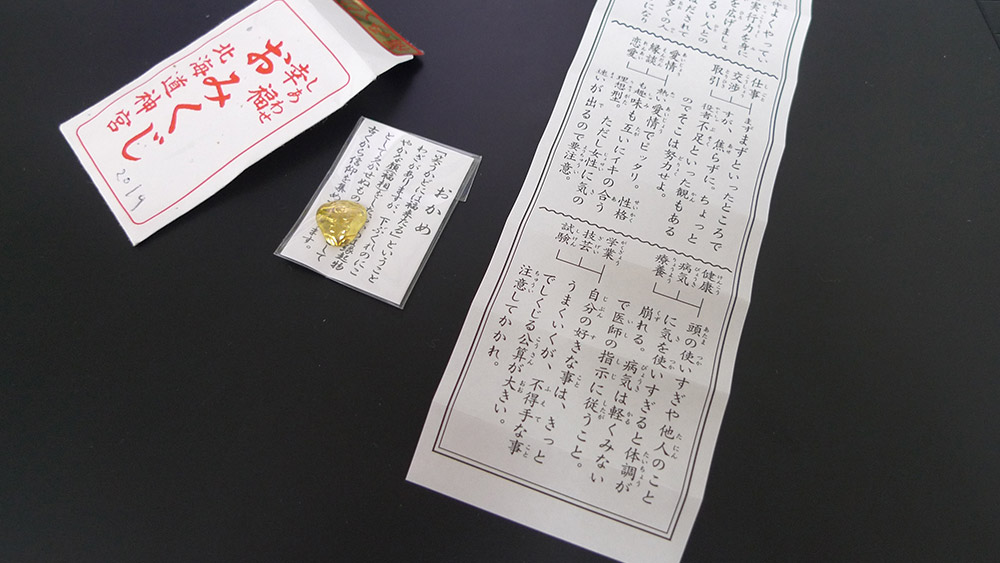 幸福
しあわせ
おみくじ
北海道神宮
2019
おかめ
「笑うかどには福来たる」ということ
わざがありますが、下ぶくれのにこ
やかな顔福相
として欠かせぬもの
縁起物
古くから信仰を集め
て
ます。
実行力を身に
を広げましょ
るい人との
多くの人
にな
仕事
交渉
取引
まずまずといったところで
すが、焦らずに。ちょっと
役者不足といった観もある
のでそこは努力せよ。
愛情
縁談
恋愛
熱い愛情でピッタリ。性格
も趣味も互いにイキの合う
理想型。ただし女性に気の
迷いが出るので要注意。
健康
病気
療養
頭の使いすぎや他人のこと
に気を使いすぎると体調が
崩れる。病気は軽くみない
で医師の指示に従うこと。
学業
技芸
試験
自分の好きな事は、きっと
うまくいくが、不得手な事
でしくじる公算が大きい。
注意してかかれ。